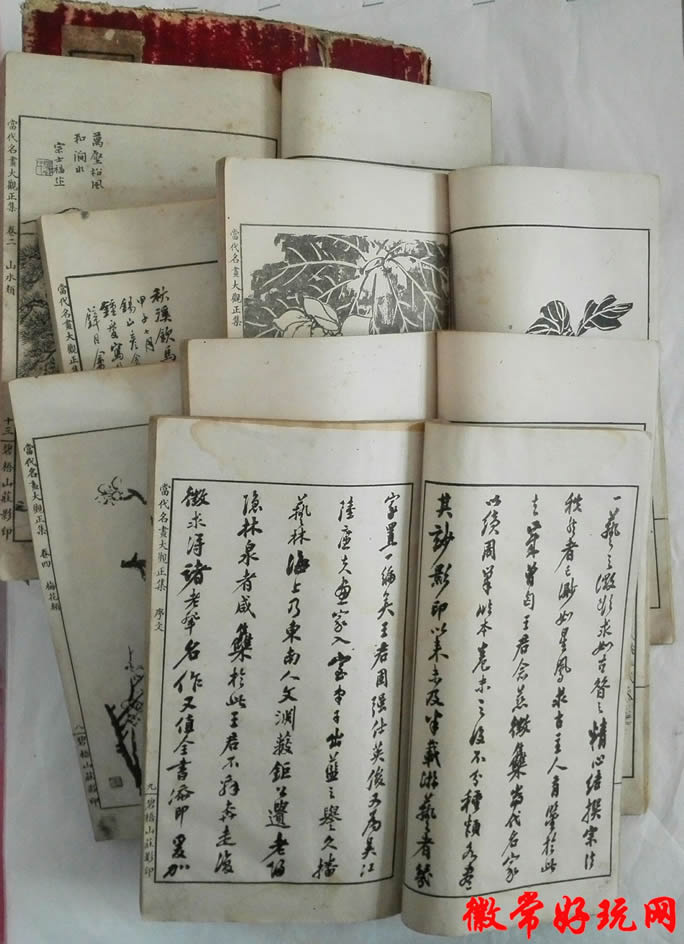 萬壑松風
和澗水
宗士福作
當代名畫大觀正集 卷二 山水類
十三 碧梧山莊影印
秋溪飲馬
甲子七月
錫山
當代名畫大觀正集
當代名畫大觀正集
當代名畫大觀正集 卷四 梅花類
八 碧梧山莊影印
一藝之微 求如古賢之精心結撰宗法
秩然者之渺如星鳳求古主人有鑒於此
去歲曾 王君念慈徵集當代名家
以續周 此本卷末之後不分種類 盡
其鈔影印以來未及半載游藝者幾
家置一編矣王君周强仕英俊又為吳江
陸廉夫畫家入室弟子出藍之譽久播
藝林海上乃東南人文淵藪鉅公遺老歸
隱林泉者咸集於此王君不辭奔走復
徵求得諸老輩名作又值全書添印爰加
當代名畫大觀正集 序文
九 碧梧山莊影印
徽常好玩网